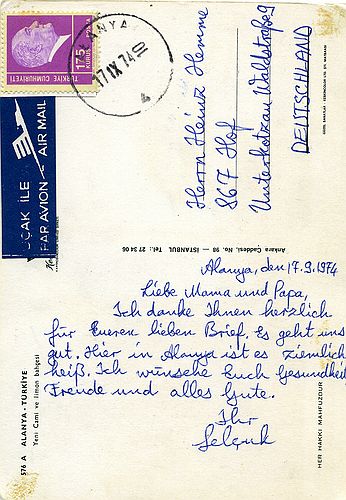 175
KURUŞ
TÜRKİYE CUMHURİYETİ
ALANYA
17 IX 74
UÇAK İLE
PAR AVION
AIR MAIL
Herrn Heinz Hemme
867 Hof
Unterkotzau Waldstraße 9
DEUTSCHLAND
Ankara Caddesi, No. 98 — İSTANBUL Tel.: 27 34 06
Alanya, den 17.9.1974
Liebe Mama und Papa,
Ich danke Ihnen herzlich
für Eueren lieben Brief. Es geht uns
gut. Hier in Alanya ist es ziemlich
heiß. Ich wünsche Euch Gesundheit
Freude und alles Gute.
Ihr
Selçuk
576 A ALANYA - TÜRKİYE
Yeni Cami ve limon bahçesi
HER HAKKI MAHFUZDUR